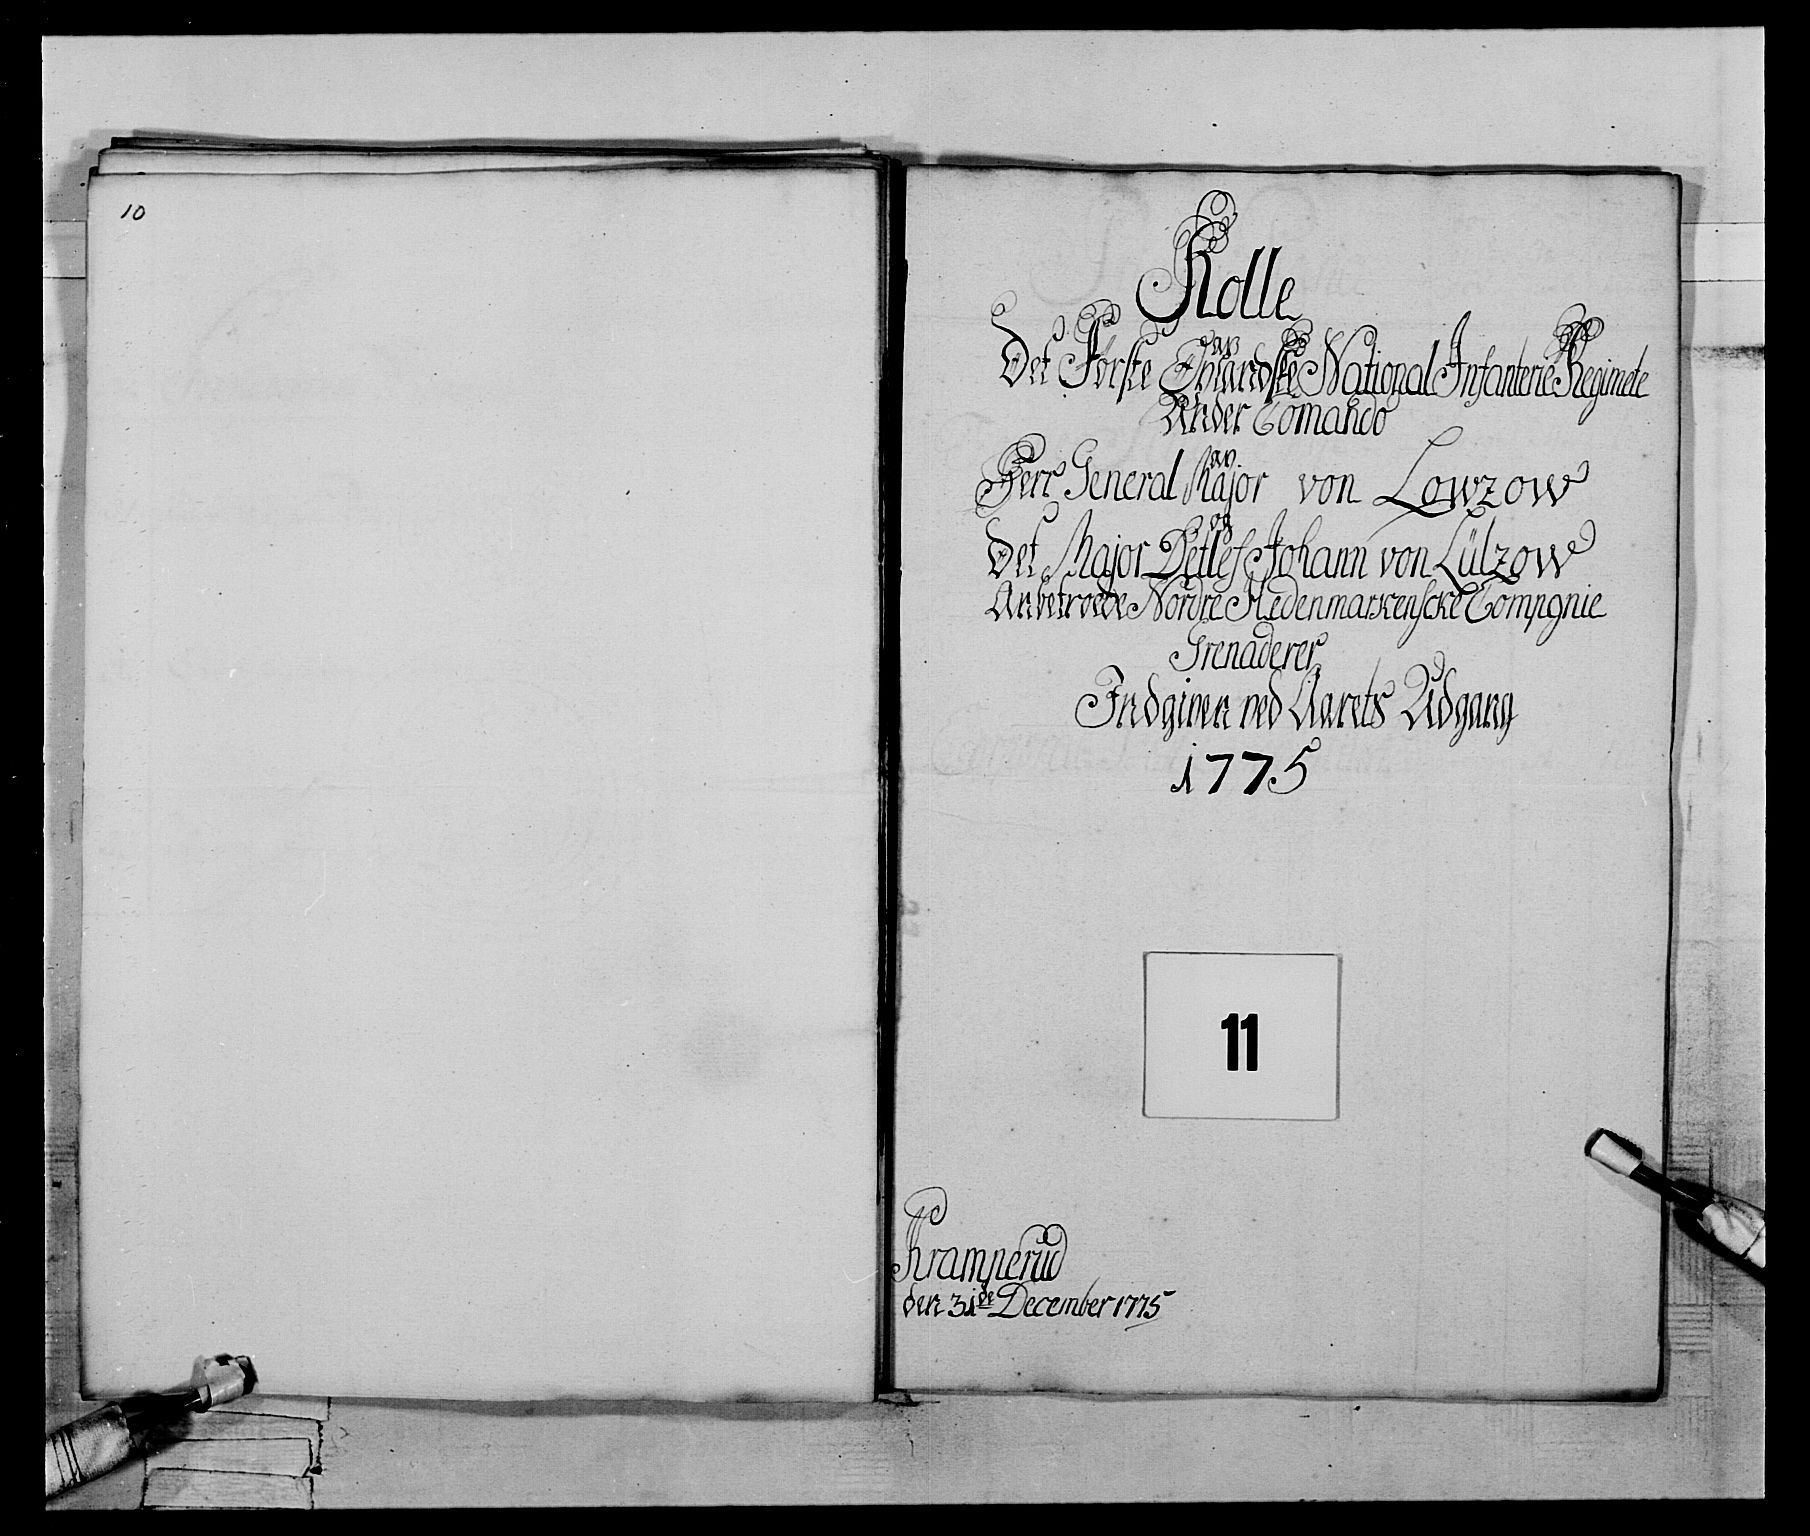 10
Rolle
av
Det Første Oplandske National Infanterie Regimete
Under Comando
av
Herr General Major von Lowzow
og
Det Major Detlef Johann von Lülzow
Anbetroede Nordre Hedenmarkenscke Compgnie
Grenaderer
Indgiven ved Aarets Udgang
1775
11
Kramperud
den 31de December 1775